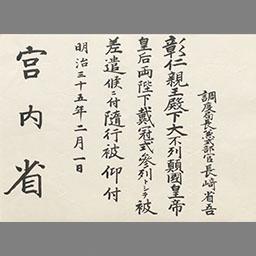 調度局長兼式部官長崎省吾
彰仁親王殿下大不列顛國皇帝
皇后両陛下戴冠式参列トシテ被
差遣候ニ付隨行被仰付
明治三十五年二月一日
宮内省